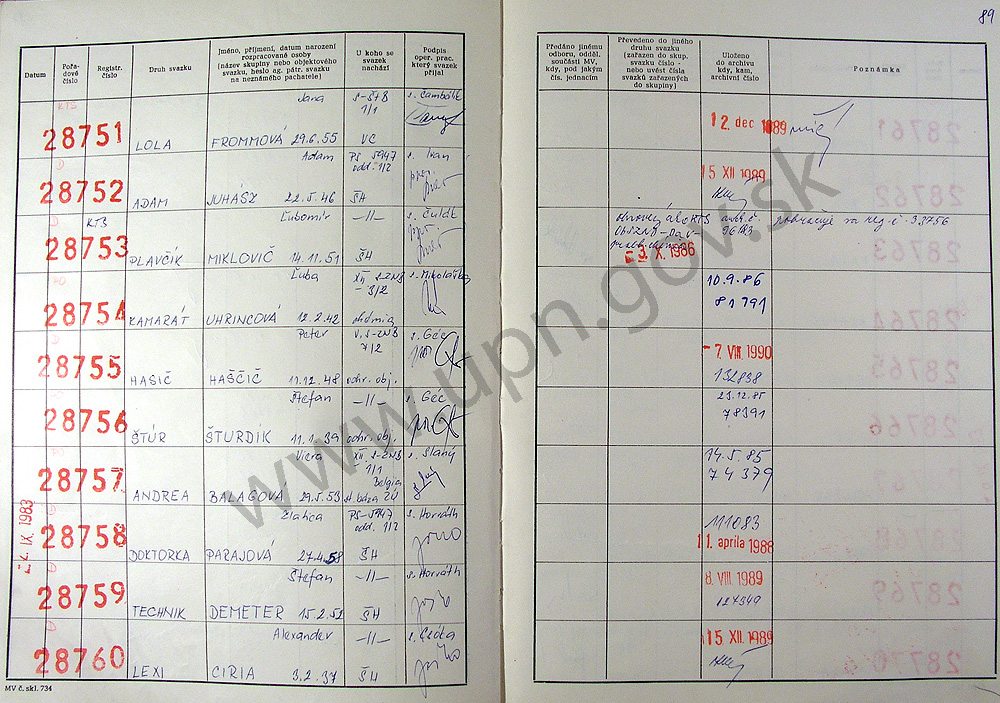 89
Datum
Pořadové číslo
Registr. číslo
Druh svazku
Jméno, příjmení, datum narození
rozpracované osoby
(název skupiny nebo objektového
svazku, heslo ag. pátr. svazku
na neznámého pachatele)
U koho se
svazek
nachází
Podpis
oper. prac.
který svazek
přijal
Předáno jinému
odboru, odděl.
součásti MV,
kdy, pod jakým
čís. jednacím
Převedeno do jiného
druhu svazku
(zařazen do skup.
svazku číslo -
nebo uvést čísla
svazků zařazených
do skupiny)
Uloženo
do archivu
kdy, kam,
archivní číslo
Poznámka
KTS
Jana
S-ŠTB
1/1
28751 LOLA FROMMOVÁ 29.6.55 VC
12. dec 1989
D
Adam
PS 5947
odd. 1/2
s. Ivan
28752 ADAM JUHÁSZ 22.5.46 ŠH
15 XII 1989
D KTS
Ľubomír
-//-
28753 PLAVČÍK MIKLOVIČ 14.11.51 ŠH
3. X. 1986
PO
Ľuba
XII. S-ZNB
- 3/2
28754 KAMARÁT UHRINCOVÁ 12.2.42
10.9.86
81791
Peter
V. S-ZNB
7/2
s. Géc
28755 HASIČ HAŠČIČ 11.12.48 ochr. obj.
- 7. VIII 1990
132838
Štefan
-//-
s. Géc
28756 ŠTÚR ŠTURDÍK 11.1.39 ochr. obj.
23.12.85
78391
PO
Viera
XII. S-ZNB
- 1/1
s. Slaný
28757 ANDREA BALAGOVÁ 29.5.53
Belgia
14.5.85
74379
22. IX. 1983
D
Zlatica
PS-5947
odd. 1/2
s. Horváth
28758 DOKTORKA PARAJOVÁ 27.4.58 ŠH
111083
11. aprila 1988
D
Štefan
-//-
s. Horváth
28759 TECHNIK DEMETER 15.2.52 ŠH
8. VIII. 1989
D
Alexander
-//-
28760 LEXI CIRIA 3.2.37 ŠH
15 XII. 1989
MV č. skl. 734
www.upn.gov.sk